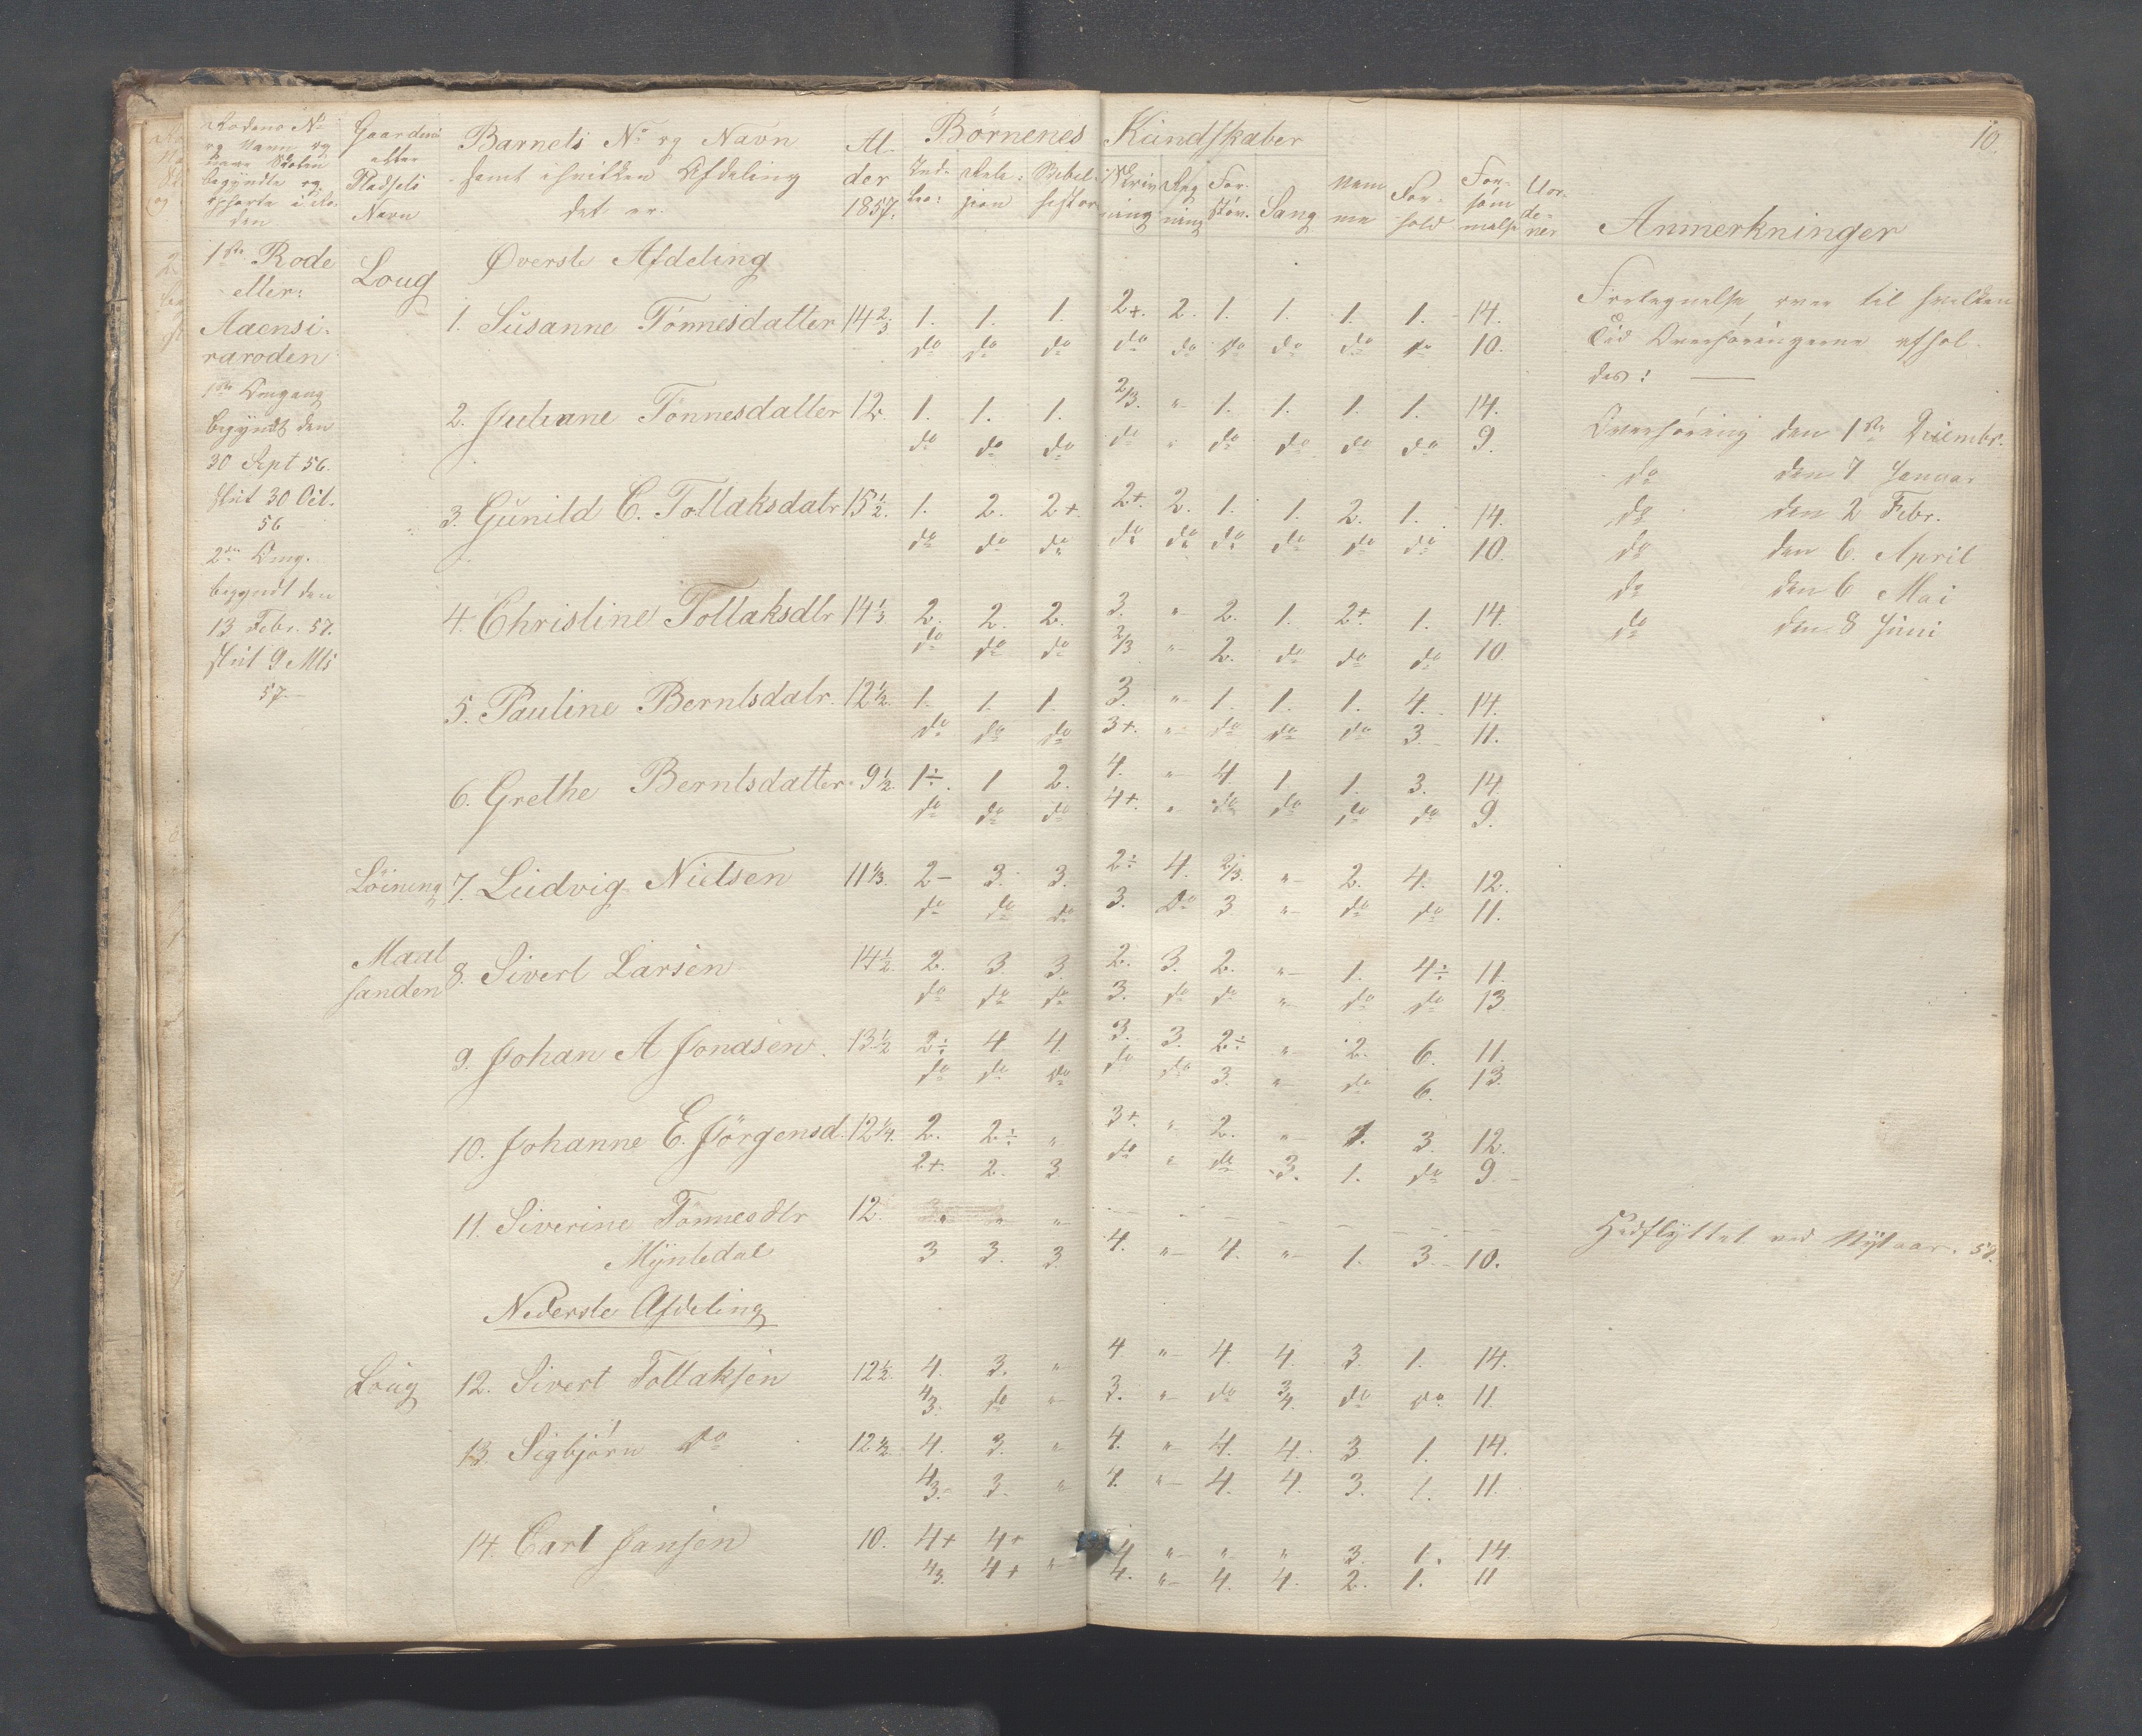 10.
Rodens No
og Navn og
naar Skolen
begyndte og
ophørte i Ro
den
Gaardens
eller
Pladsets
Navn
Barnets No og Navn
samt i hvilken Afdeling
det er.
Al
der
1857.
Børnenes Kundskaber
Inden
læs:
Reli:
gion
Bibel
histor
Skriv
ning
Reg
ning
For
stan.
Sang
Nem
me
For-
hold
For-
søm
melse
Uor-
de-
ner
Anmerkninger
1ste Rode
eller:
Aaensi-
raroden
1ste Omgang
begyndt den
30 Sept 56.
slut 30 Oct.
56
2den Omg.
begyndt den
13 Febr. 57.
slut 9 Mts
57.
Øverste Afdeling
Loug 1. Susanne Tønnesdatter 14 2/3 1. 1. 1. 2+. 2. 1. 1. 1. 1. 14.
do do do do do do do do do 10.
2. Juliane Tønnesdatter 12 1. 1. 1. 2/3. " 1. 1. 1. 1. 14.
do do do do " do do do do 9.
3. Gunild C. Tollaksdatr 15 1/2. 1. 2. 2+ 2+. 2. 1. 1. 2. 1. 14.
do do do do do do do do do 10.
4. Christine Tollaksdtr 14 1/3 2. 2. 2. 3. " 2. 1. 2+ 1. 14.
do do do 2/3 " 2. do do do 10
5. Pauline Berntsdatr. 12 1/2. 1. 1. 1. 3. " 1. 1. 1. 4. 14.
do do do 3+. " do do do 3. 11.
6. Grethe Berntsdatter 9 1/2. 1÷. 1 2. 4. " 4. 1. 1. 3. 14.
do do do 4+. " do do do do 9.
Löining 7. Ludvig Nielsen 11 1/3. 2- 3. 3. 2÷ 4. 2/3. " 2. 4. 12.
do do do 3. Do 3 " do do 11.
Maal
sanden 8. Sivert Larsen 14 1/2 2. 3. 3. 2. 3. 2. " 1. 4÷ 11.
do do do 3. do do " do do 13
9. Johan A Jonasen. 13 1/2 2÷ 4. 4. 3. 3. 2÷ " 2. 6. 11.
do do do do do 3. " do 6. 13.
10. Johanne E. Jörgensd. 12 1/4. 2. 2÷ " 3+. " 2. " 1. 3. 12.
2+. 2. 3 do " do 3. 1. do 9.
11. Siverine Tønnesdtr 12.
Myntedal 3 3. 3. 4. " 4. " 1. 3. 10.
Nederste Afdeling
Loug 12. Sivert Tollaksen 12 1/2. 4. 3. " 4 " 4. 4. 3. 1. 14.
4/3. do " 3. " do 3/4. do do 11.
13. Sigbjörn Do 12 1/2. 4. 3. " 4. " 4. 4. 3 1. 14.
4/3. 3. " 4. " 4. 4. 3. 1. 11.
14. Carl Jansen 10. 4+ 4+ 4 " " " 3. 1. 14
4/3. 4+ " 4. " 4. 4. 2. 1. 11
over til hvilken
Tid Overhøringerne afhol-
des:
Overhøring den 1ste Decembr.
do den 7 Januar
do den 2 Febr.
do den 6. April
do den 6 Mai
do den 8 Juni
Hidflyttet ved Nytaar. 58.